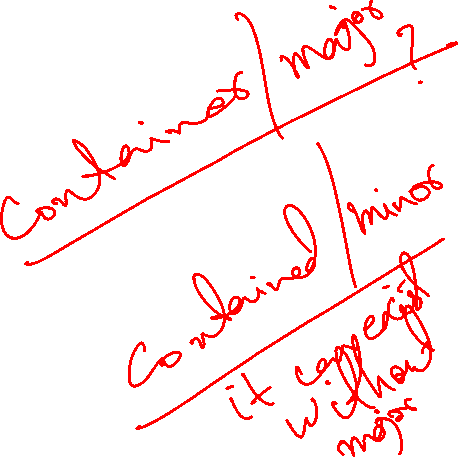 Container / major ?
Contained / minor
it can exist
without
major